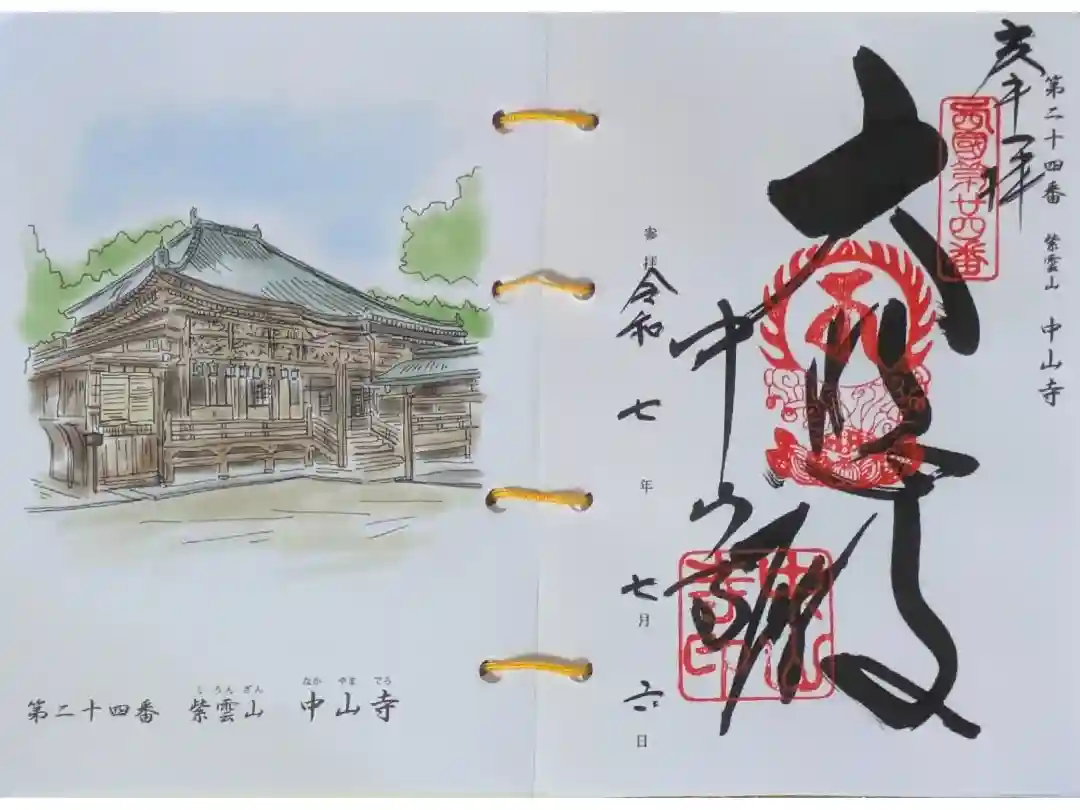 しうんざん なかやまでら
第二十四番 紫雲山 中山寺
第二十四番 紫雲山 中山寺
奉拝
西國第廿四番
大悲殿
中山寺
中山寺印
参拝 令和七年七月六日